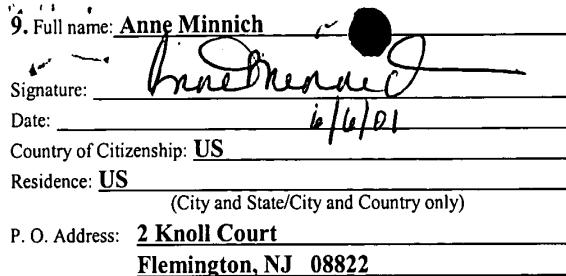 9. Full name: Anne Minnich
Signature: Anne Minnich
Date: 6/6/01
Country of Citizenship: US
Residence: US
(City and State/City and Country only)
P. O. Address: 2 Knoll Court
Flemington, NJ 08822